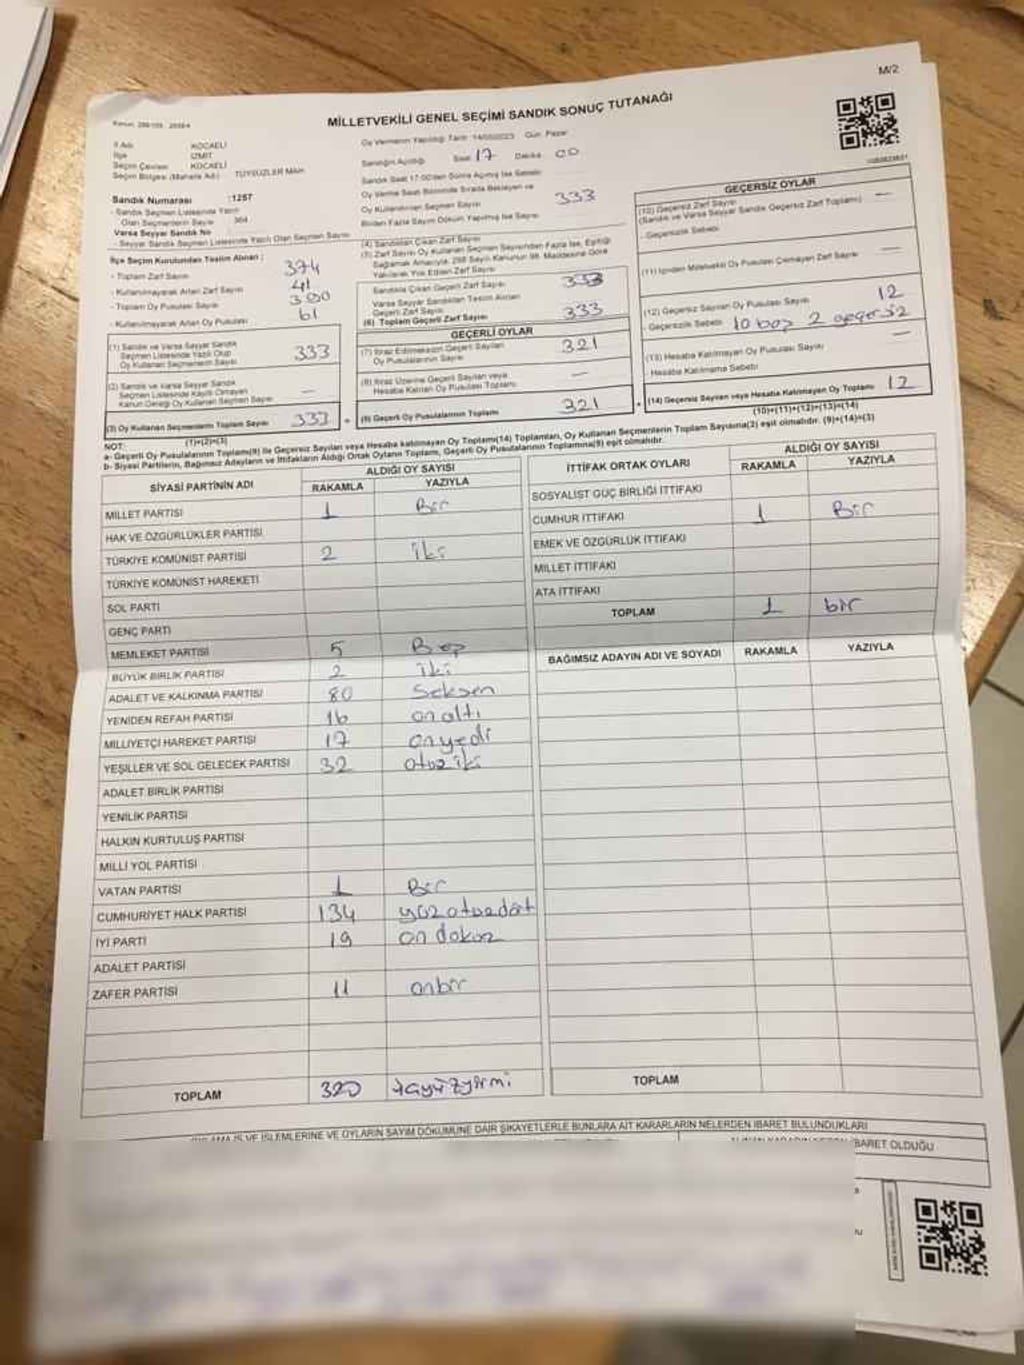 M/2
MİLLETVEKİLİ GENEL SEÇİMİ SANDIK SONUÇ TUTANAĞI
İl Adı KOCAELİ
İlçe İZMİT
Seçim Çevresi KOCAELİ
Seçim Bölgesi (Mahalle Adı) TÜYSÜZLER MAH.
Sandık Numarası :1257
- Sandık Seçmen Listesinde Yazılı
Olan Seçmenlerin Sayısı 364
Varsa Seyyar Sandık No
- Seyyar Sandık Seçmen Listesinde Yazılı Olan Seçmen Sayısı
İlçe Seçim Kurulundan Teslim Alınan :
- Toplam Zarf Sayısı 374
- Kullanılmayarak Artan Zarf Sayısı 41
- Toplam Oy Pusulası Sayısı
- Kullanılmayarak Artan Oy Pusulası 61
(1) Sandık ve Varsa Seyyar Sandık
Seçmen Listesinde Yazılı Olup
Oy Kullanan Seçmenlerin Sayısı 333
(2) Sandık ve Varsa Seyyar Sandık
Seçmen Listesinde Kaydı Olmayan
Kanun Gereği Oy Kullanan Seçmen Sayısı —
(3) Oy Kullanan Seçmenlerin Toplam Sayısı 333
(1)+(2)=(3)
Oy Vermenin Yapıldığı Tarih: 14/05/2023 Gün: Pazar
Sandığın Açıldığı Saat 17 Dakika 00
Sandık Saat 17.00'den Sonra Açılmış İse Sebebi
Oy Verme Saati Bitiminde Sırada Bekleyen ve
Oy Kullandırılan Seçmen Sayısı
Birden Fazla Sayım Döküm Yapılmış İse Sayısı
333
(4) Sandıktan Çıkan Zarf Sayısı
(5) Zarf Sayısı Oy Kullanan Seçmen Sayısından Fazla İse, Eşitliği
Sağlamak Amacıyla, 298 Sayılı Kanunun 98. Maddesine Göre
Yakılarak Yok Edilen Zarf Sayısı
Sandıkta Çıkan Geçerli Zarf Sayısı 333
Varsa Seyyar Sandıktan Teslim Alınan
Geçerli Zarf Sayısı
(6) Toplam Geçerli Zarf Sayısı 333
GEÇERLİ OYLAR
(7) İtiraz Edilmeksizin Geçerli Sayılan
Oy Pusulalarının Sayısı 321
(8) İtiraz Üzerine Geçerli Sayılan veya
Hesaba Katılan Oy Pusulası Toplamı —
(9) Geçerli Oy Pusulalarının Toplamı 321
GEÇERSİZ OYLAR
(10) Geçersiz Zarf Sayısı —
(Sandık ve Varsa Seyyar Sandık Geçersiz Zarf Toplamı)
- Geçersizlik Sebebi
(11) İçinden Milletvekili Oy Pusulası Çıkmayan Zarf Sayısı —
(12) Geçersiz Sayılan Oy Pusulası Sayısı 12
- Geçersizlik Sebebi 10 boş 2 geçersiz
(13) Hesaba Katılmayan Oy Pusulası Sayısı —
Hesaba Katılmama Sebebi
(14) Geçersiz Sayılan veya Hesaba Katılmayan Oy Toplamı 12
(10)+(11)+(12)+(13)=(14)
NOT:
a- Geçerli Oy Pusulalarının Toplamı(9) ile Geçersiz Sayılan veya Hesaba katılmayan Oy Toplamı(14) Toplamları, Oy Kullanan Seçmenlerin Toplam Sayısına(3) eşit olmalıdır. (9)+(14)=(3)
b- Siyasi Partilerin, Bağımsız Adayların ve İttifakların Aldığı Ortak Oyların Toplamı, Geçerli Oy Pusulalarının Toplamına(9) eşit olmalıdır.
SİYASİ PARTİNİN ADI ALDIĞI OY SAYISI
RAKAMLA YAZIYLA
MİLLET PARTİSİ 1 Bir
HAK VE ÖZGÜRLÜKLER PARTİSİ
TÜRKİYE KOMÜNİST PARTİSİ 2 iki
TÜRKİYE KOMÜNİST HAREKETİ
SOL PARTİ
GENÇ PARTİ
MEMLEKET PARTİSİ 5 Beş
BÜYÜK BİRLİK PARTİSİ 2 iki
ADALET VE KALKINMA PARTİSİ 80 Seksen
YENİDEN REFAH PARTİSİ 16 onaltı
MİLLİYETÇİ HAREKET PARTİSİ 17 onyedi
YEŞİLLER VE SOL GELECEK PARTİSİ 32 otuziki
ADALET BİRLİK PARTİSİ
YENİLİK PARTİSİ
HALKIN KURTULUŞ PARTİSİ
MİLLİ YOL PARTİSİ
VATAN PARTİSİ 1 Bir
CUMHURİYET HALK PARTİSİ 134 yüzotuzdört
İYİ PARTİ 19 on dokuz
ADALET PARTİSİ
ZAFER PARTİSİ 11 onbir
TOPLAM 320 üçyüzyirmi
İTTİFAK ORTAK OYLARI ALDIĞI OY SAYISI
RAKAMLA YAZIYLA
SOSYALİST GÜÇ BİRLİĞİ İTTİFAKI
CUMHUR İTTİFAKI 1 Bir
EMEK VE ÖZGÜRLÜK İTTİFAKI
MİLLET İTTİFAKI
ATA İTTİFAKI
TOPLAM 1 bir
BAĞIMSIZ ADAYIN ADI VE SOYADI RAKAMLA YAZIYLA
TOPLAM
İŞ VE İŞLEMLERİNE VE OYLARIN SAYIM DÖKÜMÜNE DAİR ŞİKAYETLERLE BUNLARA AİT KARARLARIN NELERDEN İBARET BULUNDUKLARI
İBARET OLDUĞU